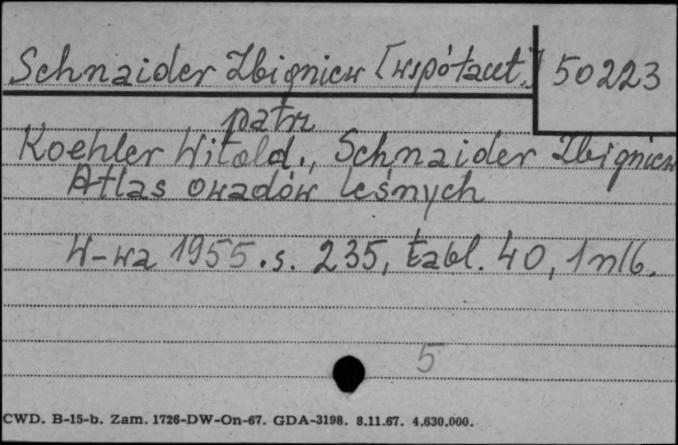 Schnaider Zbigniew [współaut.] 50223
patrz
Koehler Witold., Schnaider Zbigniew
Atlas owadów leśnych
W-wa 1955. s. 235, tabl. 40, 1 nlb.
5
CWD. B-15-b. Zam. 1726-DW-On-67. GDA-3198. 8.11.67. 4.630.000.